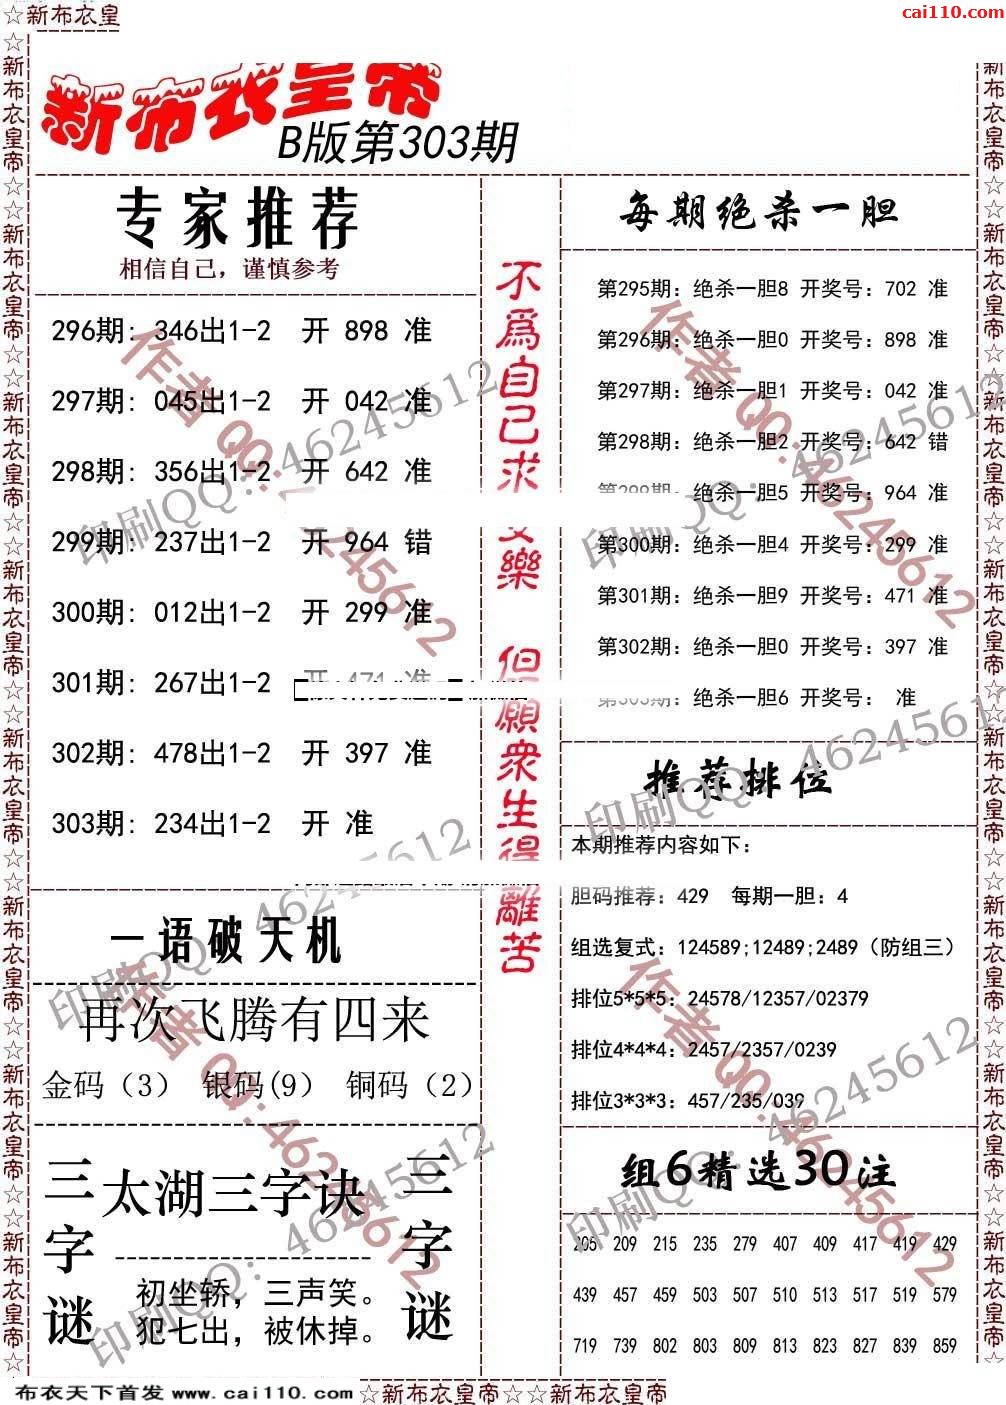 ☆新布衣皇
cai110.com
新布衣皇帝
B版第303期
专家推荐
相信自己，谨慎参考
296期: 346出1-2 开 898 准
297期: 045出1-2 开 042 准
298期: 356出1-2 开 642 准
299期: 237出1-2 开 964 错
300期: 012出1-2 开 299 准
301期: 267出1-2 开 471 准
302期: 478出1-2 开 397 准
303期: 234出1-2 开 准
一语破天机
再次飞腾有四来
金码（3） 银码(9） 铜码（2）
三字谜
太湖三字诀
初坐轿，三声笑。
犯七出，被休掉。
三字谜
不為自己求
樂
但願衆生得離苦
每期绝杀一胆
第295期: 绝杀一胆8 开奖号: 702 准
第296期: 绝杀一胆0 开奖号: 898 准
第297期: 绝杀一胆1 开奖号: 042 准
第298期: 绝杀一胆2 开奖号: 642 错
第299期: 绝杀一胆5 开奖号: 964 准
第300期: 绝杀一胆4 开奖号: 299 准
第301期: 绝杀一胆9 开奖号: 471 准
第302期: 绝杀一胆0 开奖号: 397 准
第303期: 绝杀一胆6 开奖号: 准
推荐排位
本期推荐内容如下:
胆码推荐: 429 每期一胆: 4
组选复式: 124589;12489;2489（防组三）
排位5*5*5: 24578/12357/02379
排位4*4*4: 2457/2357/0239
排位3*3*3: 457/235/039
组6精选30注
205 209 215 235 279 407 409 417 419 429
439 457 459 503 507 510 513 517 519 579
719 739 802 803 809 813 823 827 839 859
☆新布衣皇帝☆☆新布衣皇帝☆☆新布衣皇帝☆☆新布衣皇帝☆☆新布衣皇帝☆☆新布衣皇帝☆☆新布衣皇帝☆☆新布衣皇帝☆
新布衣皇帝☆☆新布衣皇帝☆☆新布衣皇帝☆☆新布衣皇帝☆☆新布衣皇帝☆☆新布衣皇帝☆☆新布衣皇帝☆☆新布衣皇帝☆
作者 QQ:46245612
印刷QQ: 46245612
作者 QQ:46245612
印刷QQ: 46245612
印刷QQ: 46245612
印刷QQ: 46245612
作者 QQ:46245612
印刷QQ: 46245612
作者 QQ:46245612
印刷QQ: 46245612
布衣天下首发 www.cai110.com ☆新布衣皇帝☆☆新布衣皇帝☆